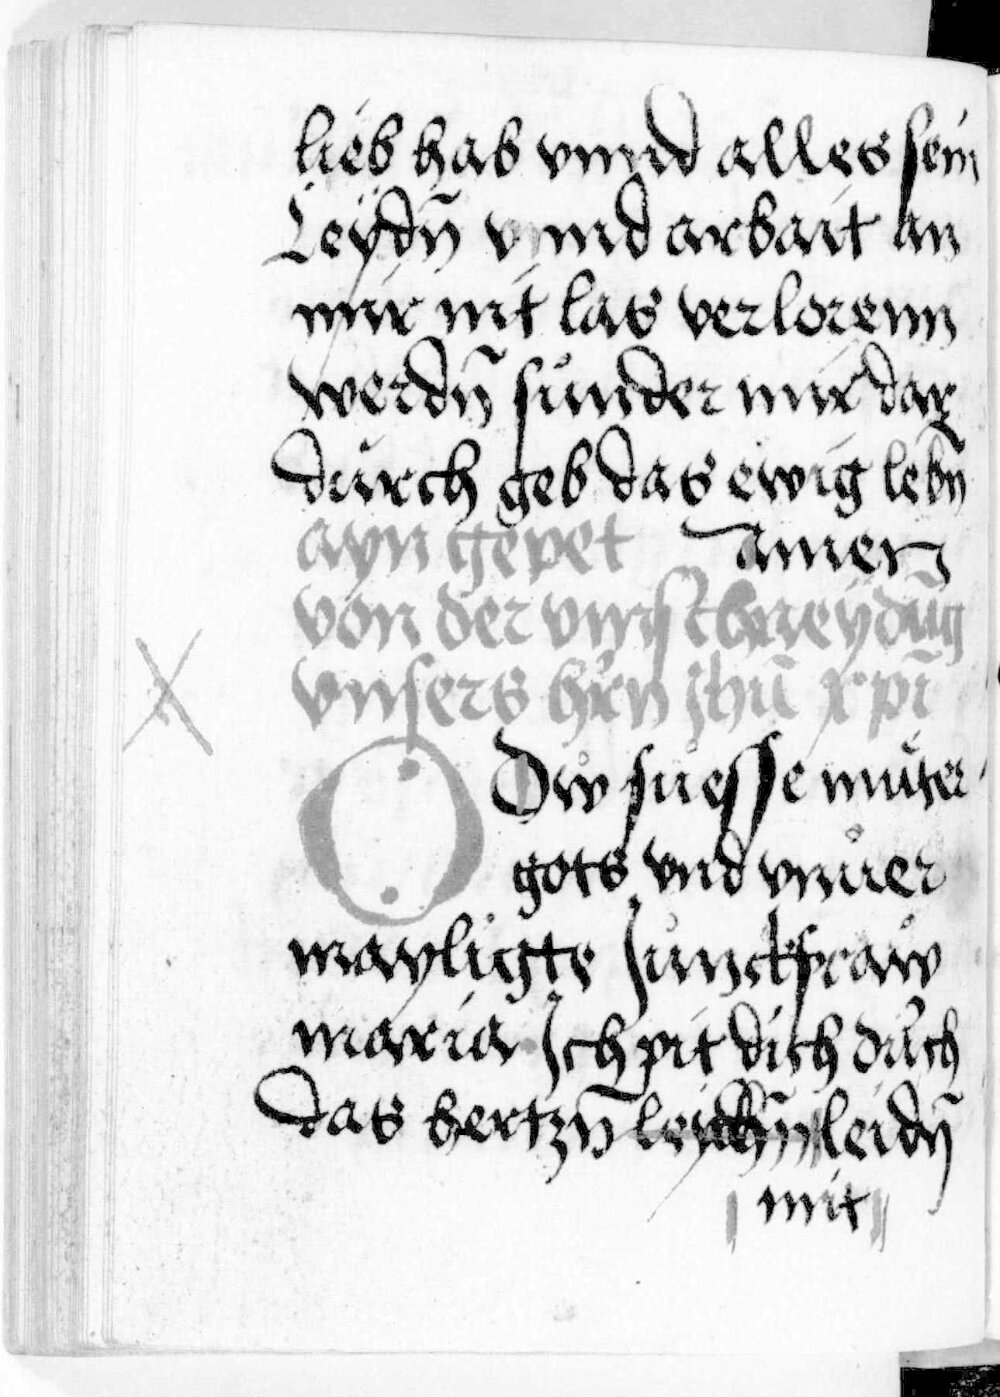 lieb hab vnnd alles sein
Leÿdn̄ vnnd arbait an
mir nit las verlorenn
werdn̄ sůnder mir dar
důrch geb das ewig lebn̄
ayn gepet amen
von der vnnst
vnsers hrn̄ Jhū xpī
O Dw suesse můter
gots vnd vnůer
mayligte Junckfraw
maria Jch pit dich důrch
das hertzn̄ leidn̄
mit